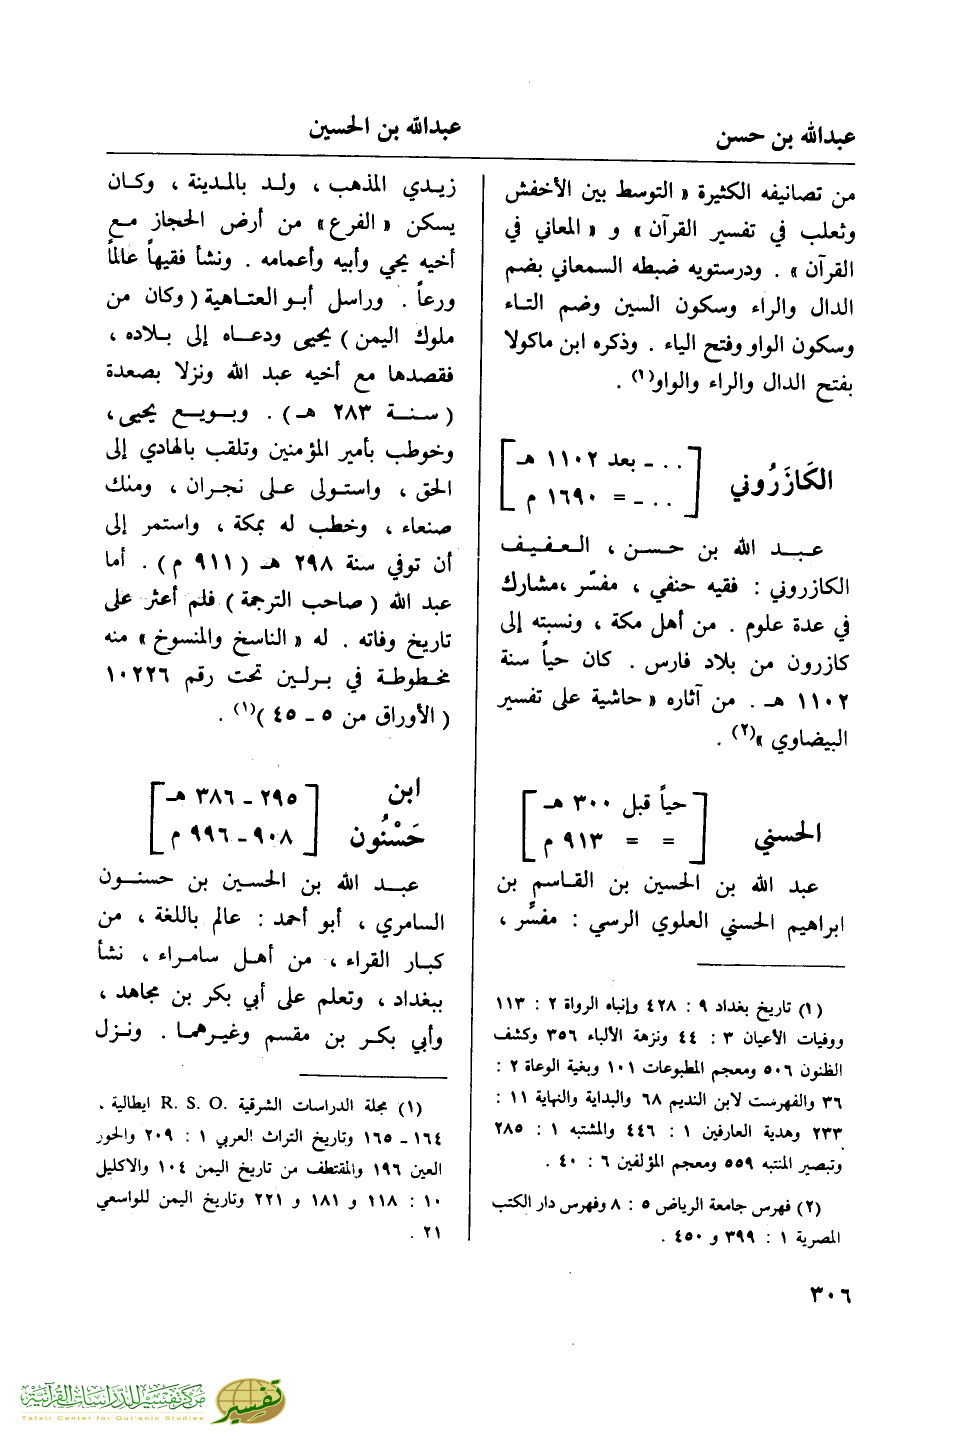 عبدالله بن حسن
عبدالله بن الحسين
من تصانيفه الكثيرة « التوسط بين الأخفش
وثعلب في تفسير القرآن » و « المعاني في
القرآن » . ودرستويه ضبطه السمعاني بضم
الدال والراء وسكون السين وضم التاء
وسكون الواو وفتح الياء . وذكره ابن ماكولا
بفتح الدال والراء والواو(١) .
الكَازَرُوني
[ . . ـ بعد ١١٠٢ هـ ]
[ . . ـ = ١٦٩٠ م ]
عبد الله بن حسن ، العفيف
الكازروني : فقيه حنفي ، مفسّر ،مشارك
في عدة علوم . من أهل مكة ، ونسبته إلى
كازرون من بلاد فارس . كان حياً سنة
١١٠٢ هـ . من آثاره « حاشية على تفسير
البيضاوي »(٢) .
الحسني
[ حياً قبل ٣٠٠ هـ ]
[ = = ٩١٣ م ]
عبد الله بن الحسين بن القاسم بن
ابراهيم الحسني العلوي الرسي : مفسّر ،
(١) تاريخ بغداد ٩ : ٤٢٨ وإنباه الرواة ٢ : ١١٣
ووفيات الأعيان ٣ : ٤٤ ونزهة الألباء ٣٥٦ وكشف
الظنون ٥٠٦ ومعجم المطبوعات ١٠١ وبغية الوعاة ٢ :
٣٦ والفهرست لابن النديم ٦٨ والبداية والنهاية ١١ :
٢٣٣ وهدية العارفين ١ : ٤٤٦ والمشتبه ١ : ٢٨٥
وتبصير المنتبه ٥٥٩ ومعجم المؤلفين ٦ : ٤٠ .
(٢) فهرس جامعة الرياض ٥ : ٨ وفهرس دار الكتب
المصرية ١ : ٣٩٩ و ٤٥٠ .
زيدي المذهب ، ولد بالمدينة ، وكان
يسكن « الفرع » من أرض الحجاز مع
أخيه يحي وأبيه وأعمامه . ونشأ فقيهاً عالماً
ورعاً . وراسل أبو العتاهية ( وكان من
ملوك اليمن ) يحيى ودعاه إلى بلاده ،
فقصدها مع أخيه عبد الله ونزلا بصعدة
( سنة ٢٨٣ هـ ) . وبويع يحيى ،
وخوطب بأمير المؤمنين وتلقب بالهادي إلى
الحق ، واستولى على نجران ، وملك
صنعاء ، وخطب له بمكة ، واستمر إلى
أن توفي سنة ٢٩٨ هـ ( ٩١١ م ) . أما
عبد الله ( صاحب الترجمة ) فلم أعثر على
تاريخ وفاته . له « الناسخ والمنسوخ » منه
مخطوطة في برلين تحت رقم ١٠٢٢٦
( الأوراق من ٥ ـ ٤٥ )(١) .
ابن
حَسْنُون
[ ٢٩٥ ـ ٣٨٦ هـ ]
[ ٩٠٨ ـ ٩٩٦ م ]
عبد الله بن الحسين بن حسنون
السامري ، أبو أحمد : عالم باللغة ، من
كبار القراء ، من أهل سامراء ، نشأ
ببغداد ، وتعلم على أبي بكر بن مجاهد ،
وأبي بكر بن مقسم وغيرهما . ونزل
(١) مجلة الدراسات الشرقية .R. S. O ايطالية .
١٦٤ ـ ١٦٥ وتاريخ التراث العربي ١ : ٢٠٩ والحور
العين ١٩٦ والمقتطف من تاريخ اليمن ١٠٤ والاكليل
١٠ : ١١٨ و ١٨١ و ٢٢١ وتاريخ اليمن للواسعي
٢١ .
٣٠٦
مركز تفسير للدراسات القرآنية
Tafsir Center for Qur'anic Studies
تفسير